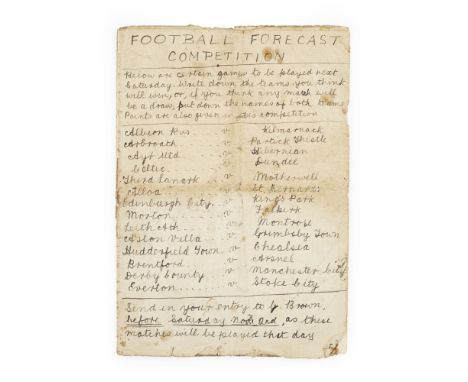 FOOTBALL FORECAST
COMPETITION
Below are certain games to be played next
Saturday. Write down the teams you think
will win, or, if you think any match will
be a draw, put down the names of both teams
Points are also given in this competition
Albion Rvs. v Kilmarnock
Arbroath v Partick Thistle
Ayr Utd v Hibernian
Celtic v Dundee
Third Lanark v Motherwell
Alloa v St. Bernards
Edinburgh City v King's Park
Morton v Falkirk
Leith Ath v Montrose
Aston Villa v Grimsby Town
Huddersfield Town v Chealsea
Brentford v Arsnel
Derby County v Manchester City
Everton v Stoke City
Send in your entry to J. Brown,
before Saturday Nov 2nd, as these
matches will be played that day